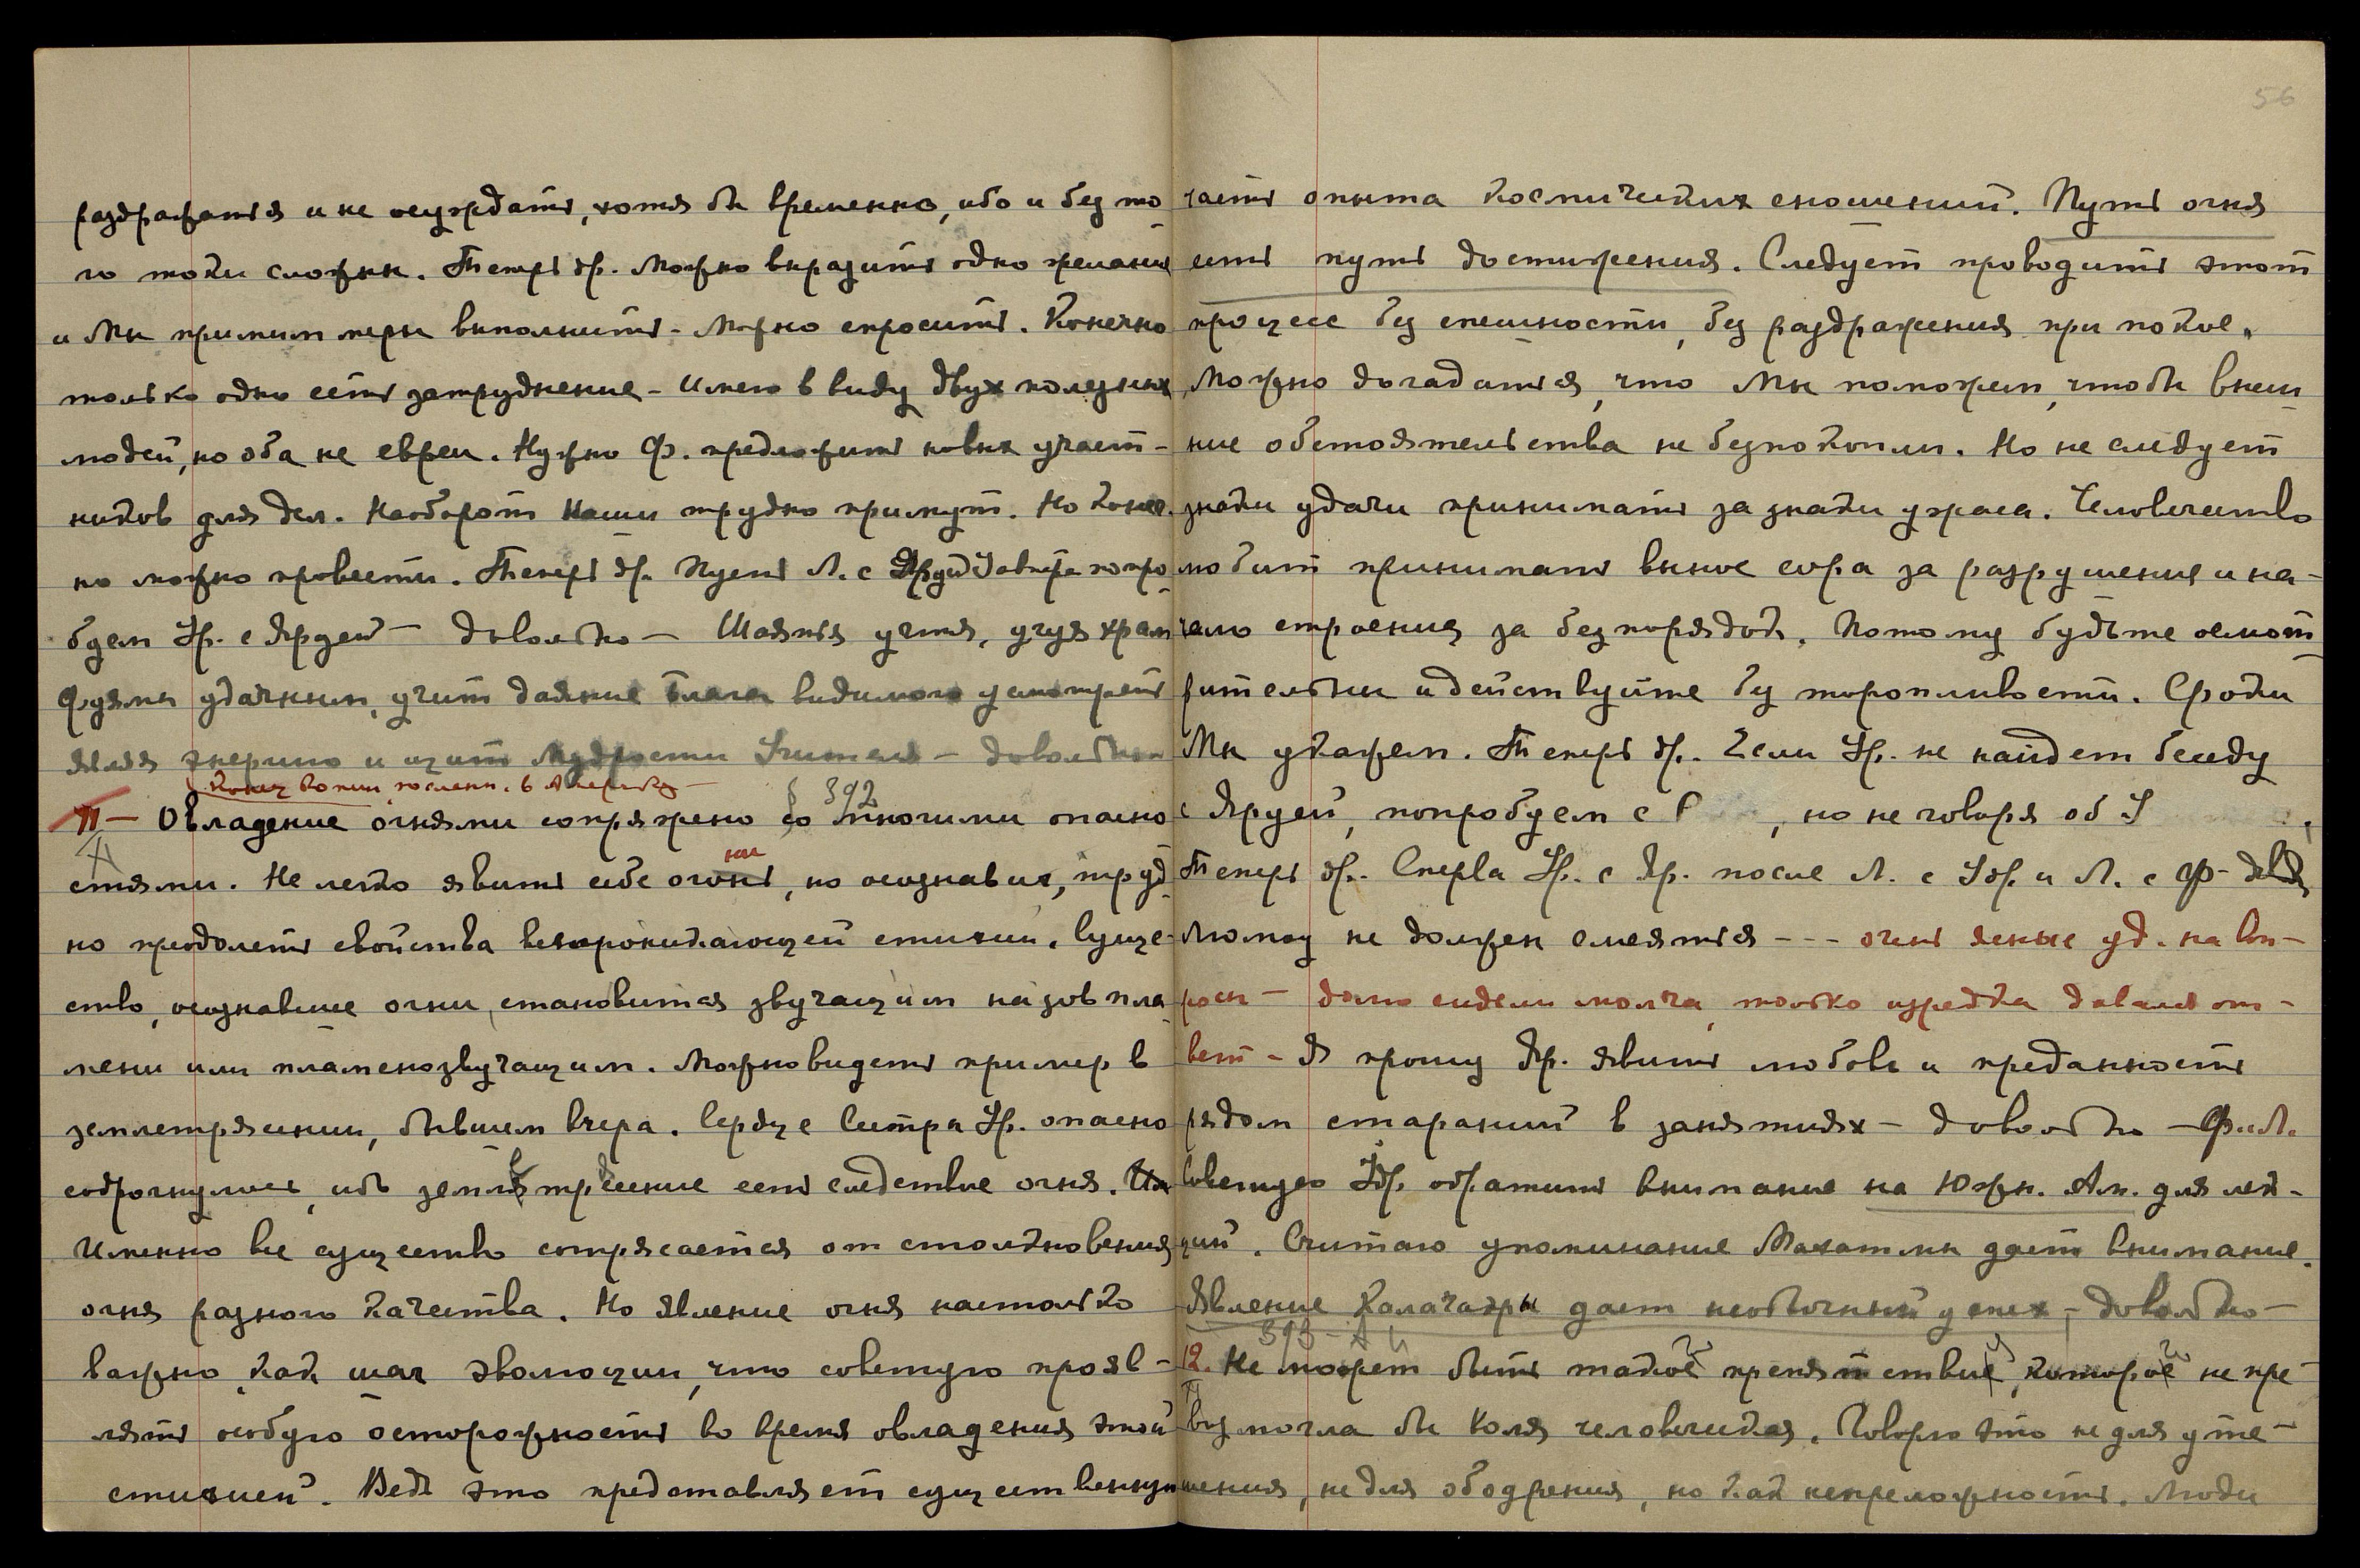 раздражаться и не осуждать, хотя бы временно, ибо и без то
го токи сложны. Теперь др. Можно выразить одно желание
и Мы примем меры выполнить - Можно спросить. Конечно
только одно есть затруднение - Имею в виду двух полезных
людей, но оба не евреи. Нужно Ф. предложить новых участ-
ников для дел. Наоборот Наши трудно примут. Но конеч.
но можно провести. Теперь др. Пусть Л. с завтра попро
буем Ур. с Яруей - довольно - Шаятся учтя, учуя храм
удачным, учит даяние блага видимого усмотреть
являя энергию и щит Мудрости Учителя - довольно
Конец копии послан. в Америку -
§ 392
11 - Овладение огнями сопряжено со многими опасно
стями. Не легко явить себе огонь, но осознавших, труд
ни
но преодолеть свойства всепроникающей стихии. Суще-
ство, осознавшее огни, становится звучащим на зов пла
мени или пламенозвучащим. Можно видеть пример в
землетрясении, бывшем вчера. Сердце Сестры Ур. опасно
содрогнулось, ибо землетрясение есть следствие огня.
Именно все существо сотрясается от столкновения
огня разного качества. Но явление огня настолько
важно, как шаг эволюции, что советую прояв-
лять особую осторожность во время овладения этой
стихией. Ведь это представляет существенную
56
часть опыта космических сношений. Путь огня
есть путь достижения. Следует проводить этот
процесс без спешности, без раздражения при покое.
Можно догадаться, что Мы поможем, чтобы внеш
ние обстоятельства не безпокоили. Но не следует
знаки удачи принимать за знаки ужаса. Человечество
любит принимать вынос сора за разрушения и на-
чало строения за безпорядок. Потому будьте осмот
рительны и действуйте без торопливости. Сроки
Мы укажем. Теперь др. Если Ур. не найдет беседу
с Яруей, попробуем с , но не говоря об
Теперь др. Сперва Ур. с Яр. после Л. с Удр. и Л. с Ф -
Люмоу не должен смеяться --- очень ясные уд. на воп-
росы - долго сидели молча, только изредка давался от-
вет - Я прошу Яр. явить любовь и преданность
рядом стараний в занятиях - довольно - Ф. и Л.
Советую Удр. обратить внимание на Южн. Ам. для лек-
ций. Считаю упоминание Махатмы дает внимание.
Явление Калачакры дает необычный успех - довольно -
393 -
12. Не может быть такое препятствие, которое не пре
возмогла бы воля человеческая. Говорю это не для уте-
шения, не для ободрения, но как непреложность. Люди